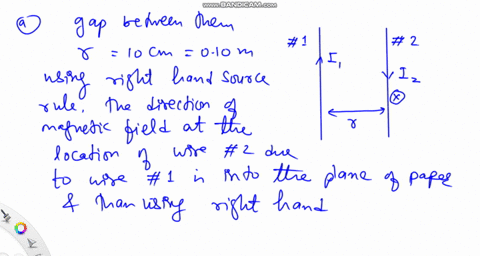 WWW.BANDICAM.COM
a) gap between them
r = 10 cm = 0.10 m
using right hand source
rule. The direction of
magnetic field at the
location of wire #2 due
to wire #1 is into the plane of paper
& than using right hand
#1 #2
I₁
I₂
r